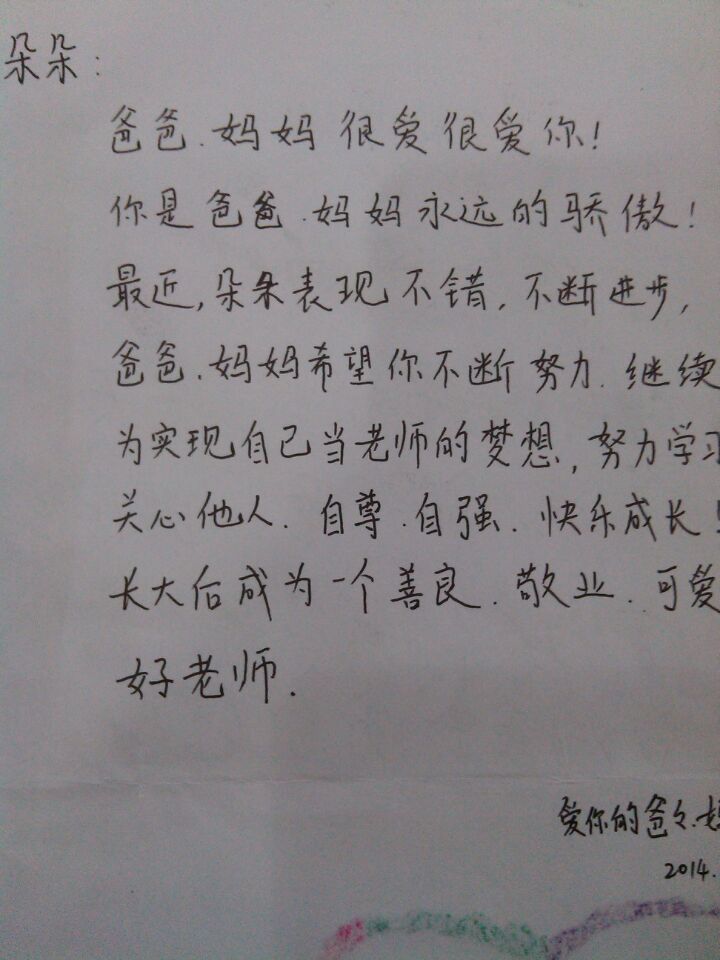 朵朵:
爸爸.妈妈很爱很爱你!
你是爸爸.妈妈永远的骄傲!
最近,朵朵表现不错,不断进步,
爸爸.妈妈希望你不断努力.继续
为实现自己当老师的梦想,努力学习
关心他人.自尊.自强.快乐成长!
长大后成为一个善良.敬业.可爱
好老师.
爱你的爸々.妈
2014.